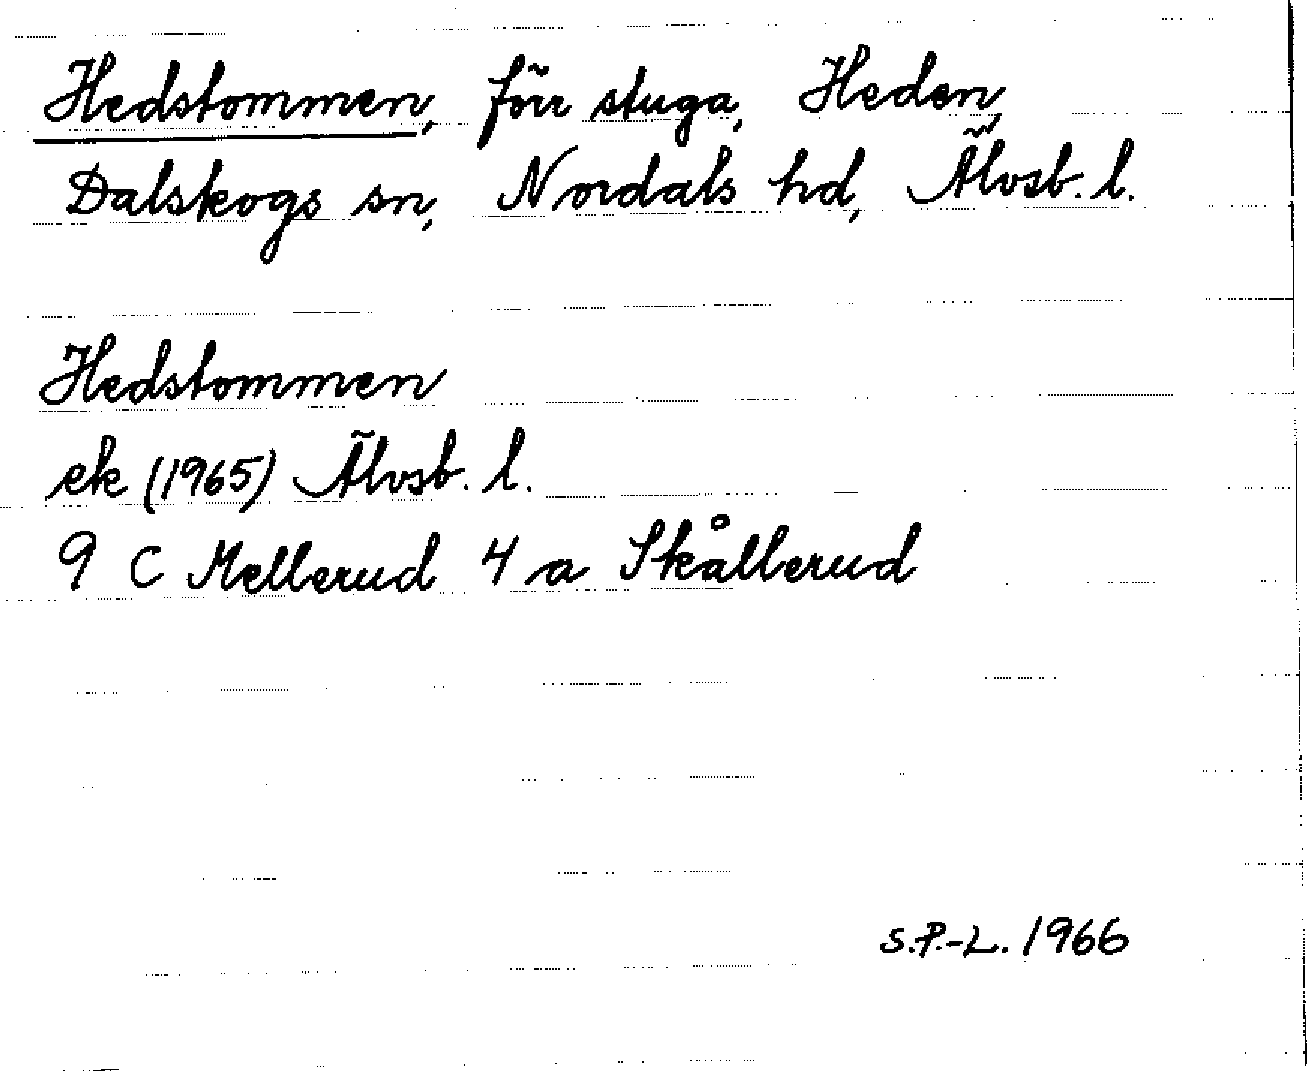 Hedstommen, förr stuga, Heden,
Dalskogs sn, Nordals hd, Älvsb. l.
Hedstommen
ek (1965) Älvsb. l.
9 C Mellerud 4 a Skållerud
S.P.-L. 1966